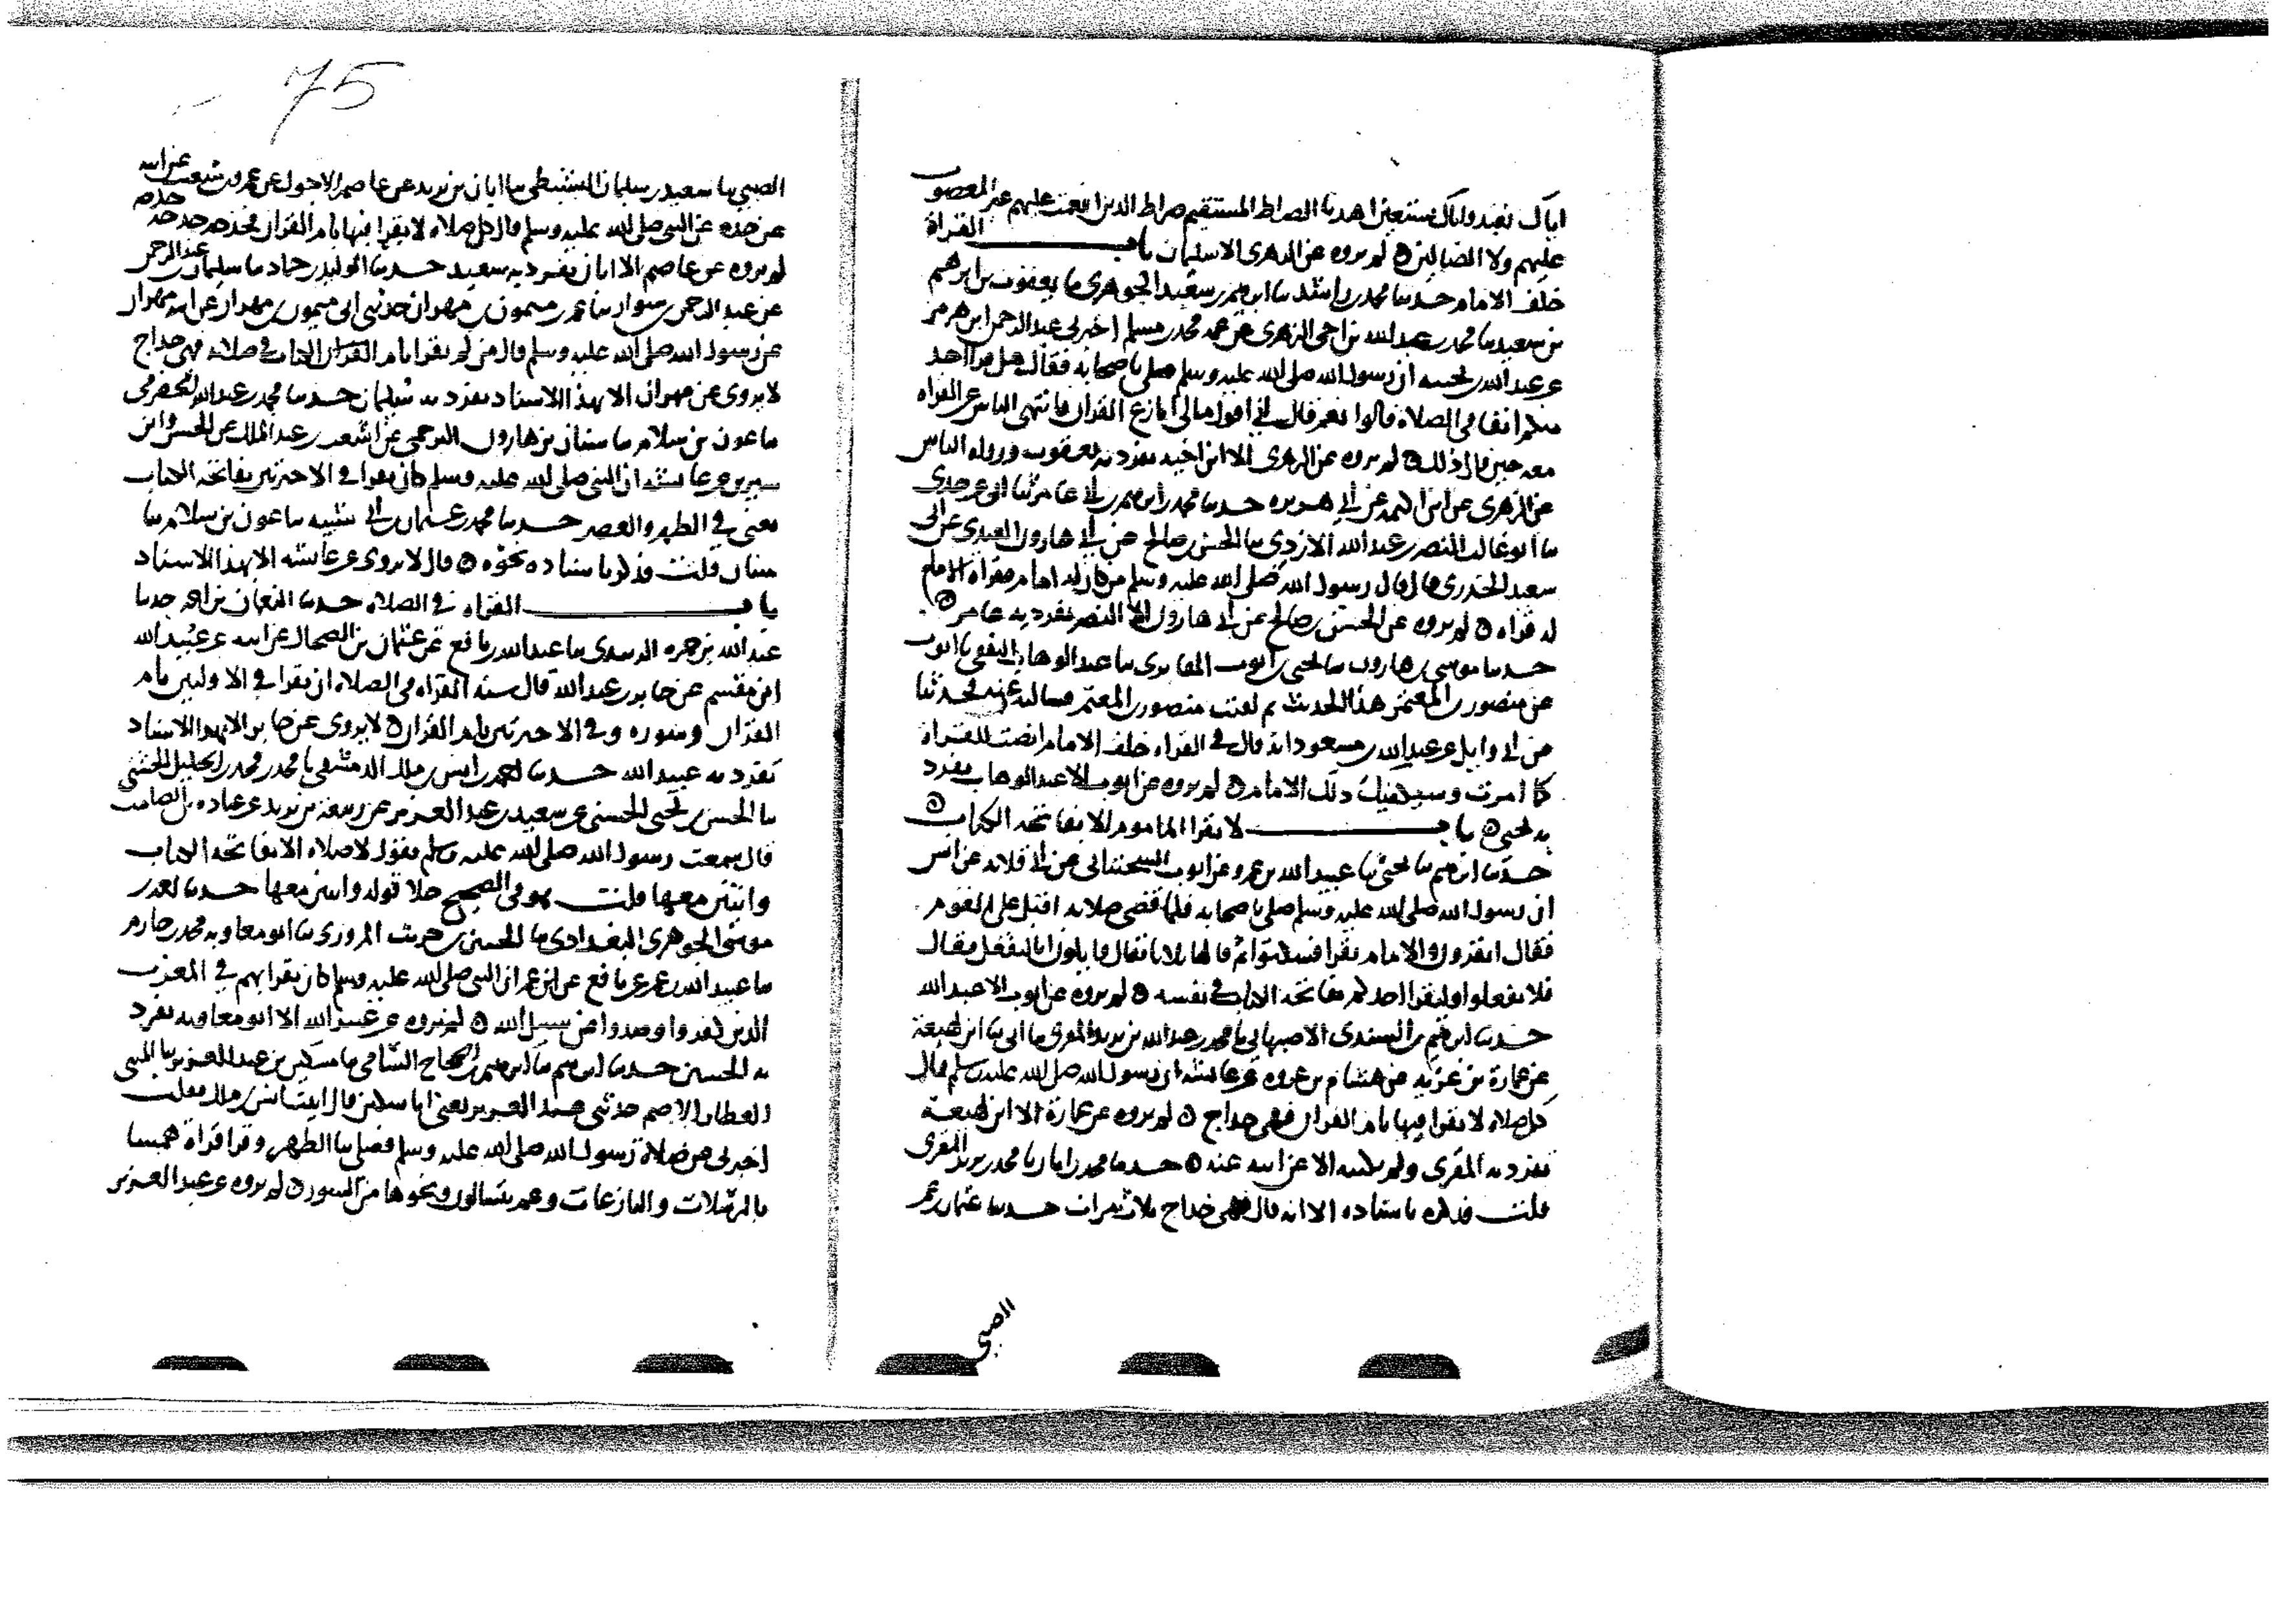 اياك نعبد واياك نستعين اهدنا الصراط المستقيم صراط الذين انعمت عليهم غير المغضوب
عليهم ولا الضالين لم يروه عن الزهرى الا سليمان باب القراة
خلف الامام حدثنا محمد بن راشد ثنا ابرهيم بن سعيد الجوهرى ثنا يعقوب بن ابرهيم
بن سعد ثنا محمد بن عبد الله بن اخى الزهرى عن عمه محمد بن مسلم اخبرنى عبد الرحمن ابن هرمز
عن عبد الله بن بحينه ان رسول الله صلى الله عليه وسلم صلى باصحابه فقال هل قرا احد
منكم انفا في الصلاة قالوا نعم قال اني اقول مالى انازع القران فانتهى الناس عن القراه
معه حين قال ذلك لم يروه عن الزهرى الا ابن اخيه تفرد به يعقوب ورواه الناس
عن الزهرى عن ابن اكيمه عن ابي هريره حدثنا محمد بن ابرهيم بن عامر ثنا ابى عن جدى
ثنا ابو غالب النضر بن عبد الله الازدى ثنا الحسن بن صالح عن ابي هارون العبدى عن ابى
سعيد الخدرى قال قال رسول الله صلى الله عليه وسلم من كان له امام فقراه الامام
له قراه لم يروه عن الحسن بن صالح عن ابي هارون الا النضر تفرد به عامر
حدثنا موسى بن هارون ثنا يحيى بن ايوب المقابرى ثنا عبد الوهاب الثقفى ثنا ايوب
عن منصور بن المعتمر هذا الحديث ثم لقيت منصور بن المعتمر فسالته عنه فحدثنا
عن ابي وايل عن عبد الله بن مسعود انه قال في القراه خلف الامام انصت للقراه
كما امرت وسيكفيك ذلك الامام لم يروه عن ايوب الا عبد الوهاب تفرد
به يحيى باب لا يقرا الماموم الا بفاتحه الكتاب
حدثنا ابرهيم ثنا يحيى ثنا عبيد الله بن عمرو عن ايوب السختيانى عن ابي قلابه عن انس
ان رسول الله صلى الله عليه وسلم صلى باصحابه فلما قضى صلاته اقبل على القوم
فقال اتقرون والامام يقرا فسكتوا ثم قالها ثلاثا فقال قايلون انا لنفعل فقال
فلا تفعلوا وليقرا احدكم بفاتحه الكتاب في نفسه لم يروه عن ايوب الا عبيد الله
حدثنا ابرهيم بن السندى الاصبهانى ثنا محمد بن عبد الله بن يزيد المقرى ثنا ابى ثنا ابن لهيعة
عن عمارة بن غزيه عن هشام بن عروه عن عايشه ان رسول الله صلى الله عليه وسلم قال
كل صلاه لا يقرا فيها بام القران فهى خداج لم يروه عن عمارة الا ابن لهيعة
تفرد به المقرى ولم يكتبه الا عن ابنه عنه حدثنا محمد بن ابان ثنا محمد بن يزيد المقرى
قلت فذكره باسناده الا انه قال فهى خداج ثلاث مرات حدثنا عثمان بن عمر
الضبي
75
الضبي ثنا سعيد بن سليمان النشيطى ثنا ابان بن يزيد عن عاصم الاحول عن عمرو بن شعيب عن ابيه
عن جده عن النبى صلى الله عليه وسلم قال كل صلاه لا يقرا فيها بام القران مخدجه مخدجه مخدجه
لم يروه عن عاصم الا ابان تفرد به سعيد حدثنا الوليد بن حماد ثنا سليمان بن عبد الرحمن
عن عبد الرحمن بن سوار ثنا عمرو بن ميمون بن مهران حدثنى ابى ميمون بن مهران عن ابيه مهران
عن رسول الله صلى الله عليه وسلم قال من لم يقرا بام القران الكتاب في صلاته فهى خداج
لا يروى عن مهران الا بهذا الاسناد تفرد به سليمان حدثنا محمد بن عبد الله الحضرمى
ثنا عون بن سلام ثنا سنان بن هارون البرجمى عن اشعث بن عبد الملك عن الحسن وابن
سيرين عن عايشه ان النبى صلى الله عليه وسلم كان يقرا في الاخرتين بفاتحه الكتاب
يعنى في الظهر والعصر حدثنا محمد بن عثمان بن ابي شيبه ثنا عون بن سلام ثنا
سنان قلت فذكر باسناده نحوه قال لا يروى عن عايشه الا بهذا الاسناد
باب القراه في الصلاه حدثنا النعمان بن احمد ثنا
عبد الله بن حمزه الزبيدى ثنا عبد الله بن نافع عن عثمان بن الضحاك عن ابيه عن عبيد الله
ابن مقسم عن جابر بن عبد الله قال سنه القراه فى الصلاه ان يقرا في الاوليين بام
القران وسوره وفي الاخرتين بام القران لا يروى عن جابر الا بهذا الاسناد
تفرد به عبيد الله حدثنا احمد بن انس بن ملك الدمشقى ثنا محمد بن الخليل الخشنى
ثنا الحسن بن يحيى الخشنى عن سعيد بن عبد العزيز عن ربيعه بن يزيد عن عباده بن الصامت
قال سمعت رسول الله صلى الله عليه وسلم يقول لا صلاه الا بفاتحه الكتاب
وايتين معها قلت هو في الصحيح خلا قوله وايتين معها حدثنا احمد بن
موسى الجوهرى البغدادى ثنا الحسين بن حريث المروزى ثنا ابو معاويه محمد بن خازم
ثنا عبيد الله بن عمر عن نافع عن ابن عمر ان النبى صلى الله عليه وسلم كان يقرا بهم في المغرب
الذين كفروا وصدوا عن سبيل الله لم يروه عن عبيد الله الا ابو معاويه تفرد
به الحسين حدثنا ابرهيم ثنا ابرهيم بن الحجاج السامى ثنا سكين بن عبد العزيز ثنا المثنى
العطار الاصم حدثنى عبد العزيز يعنى ابا سكين قال اتيت انس بن ملك فقلت
اخبرنى عن صلاة رسول الله صلى الله عليه وسلم فصلى بنا الظهر وقرا قراة همسا
بالمرسلات والنازعات وعم يتسالون ونحوها من السور لم يروه عن عبد العزيز